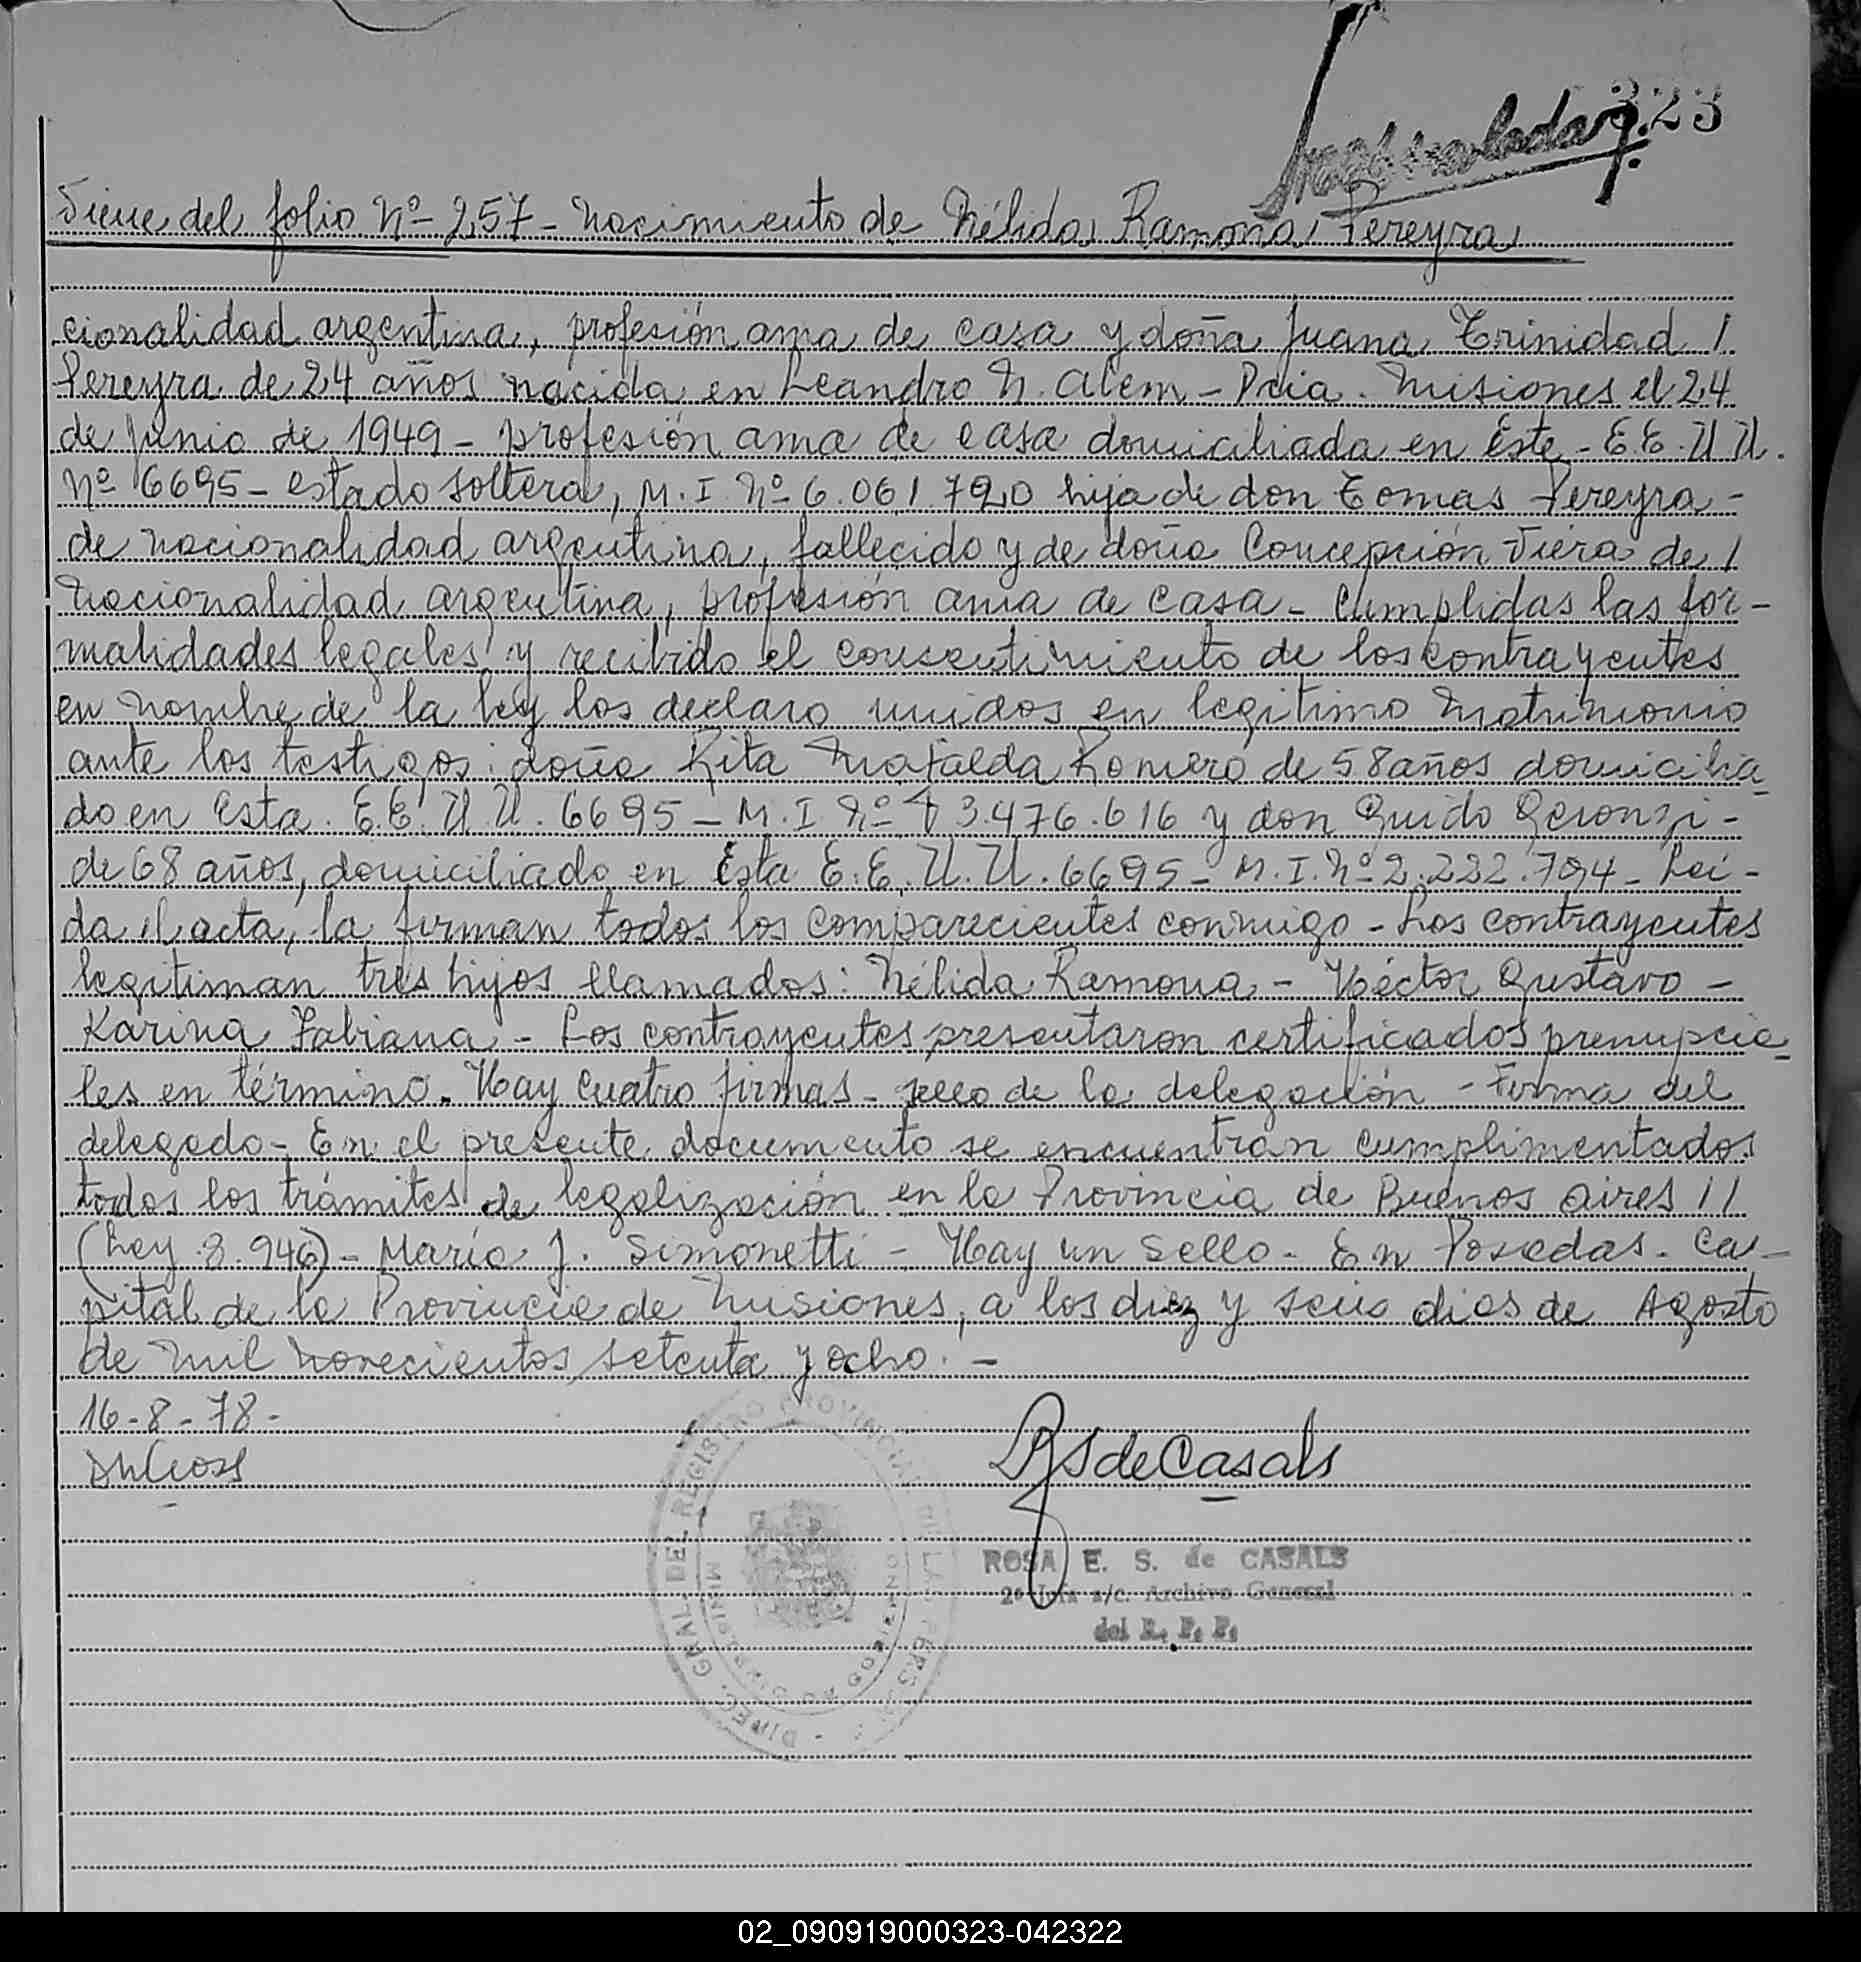 323
Viene del folio Nº 257 - Nacimiento de Nélida Ramona Pereyra
cionalidad argentina, profesión ama de casa y doña Juana Trinidad /
Pereyra de 24 años nacida en Leandro N. Alem - Pcia. Misiones el 24
de Junio de 1949 - profesión ama de casa domiciliada en Este - E.E.U.U.
Nº 6695 - estado soltera, M.I. Nº 6.061.720 hija de don Tomas Pereyra -
de nacionalidad argentina, fallecido y de doña Concepción Viera de /
nacionalidad argentina, profesión ama de casa - Cumplidas las for-
malidades legales y recibido el consentimiento de los contrayentes
en nombre de la ley los declaro unidos en legitimo matrimonio
ante los testigos: doña Rita Mafalda Romero de 58 años domicilia-
do en Esta. E.E.U.U. 6695 - M.I Nº 3.476.616 y don Guido Geronzi -
de 68 años, domiciliado en Esta E.E.U.U. 6695 - M.I. Nº 2.222.794 - Leí-
da el acta, la firman todos los comparecientes conmigo - Los contrayentes
legitiman tres hijos llamados: Nélida Ramona - Héctor Gustavo -
Karina Fabiana - Los contrayentes presentaron certificados prenupcia-
les en término. Hay cuatro firmas - sello de la delegación - Firma del
delegado - En el presente documento se encuentran cumplimentados
todos los trámites de legalización en la Provincia de Buenos Aires //
(Ley 8.946) - Mario J. Simonetti - Hay un sello - En Posadas - Ca-
pital de la Provincia de Misiones, a los diez y seis dias de Agosto
de mil novecientos setenta y ocho. -
16-8-78-
RSdeCasals
ROSA E. S. de CASALS
2º Jefa a/c. Archivo General
del R. P. P.
DIREC. GRAL. DEL REGISTRO PROVINCIAL DE LAS PERSONAS
02_090919000323-042322